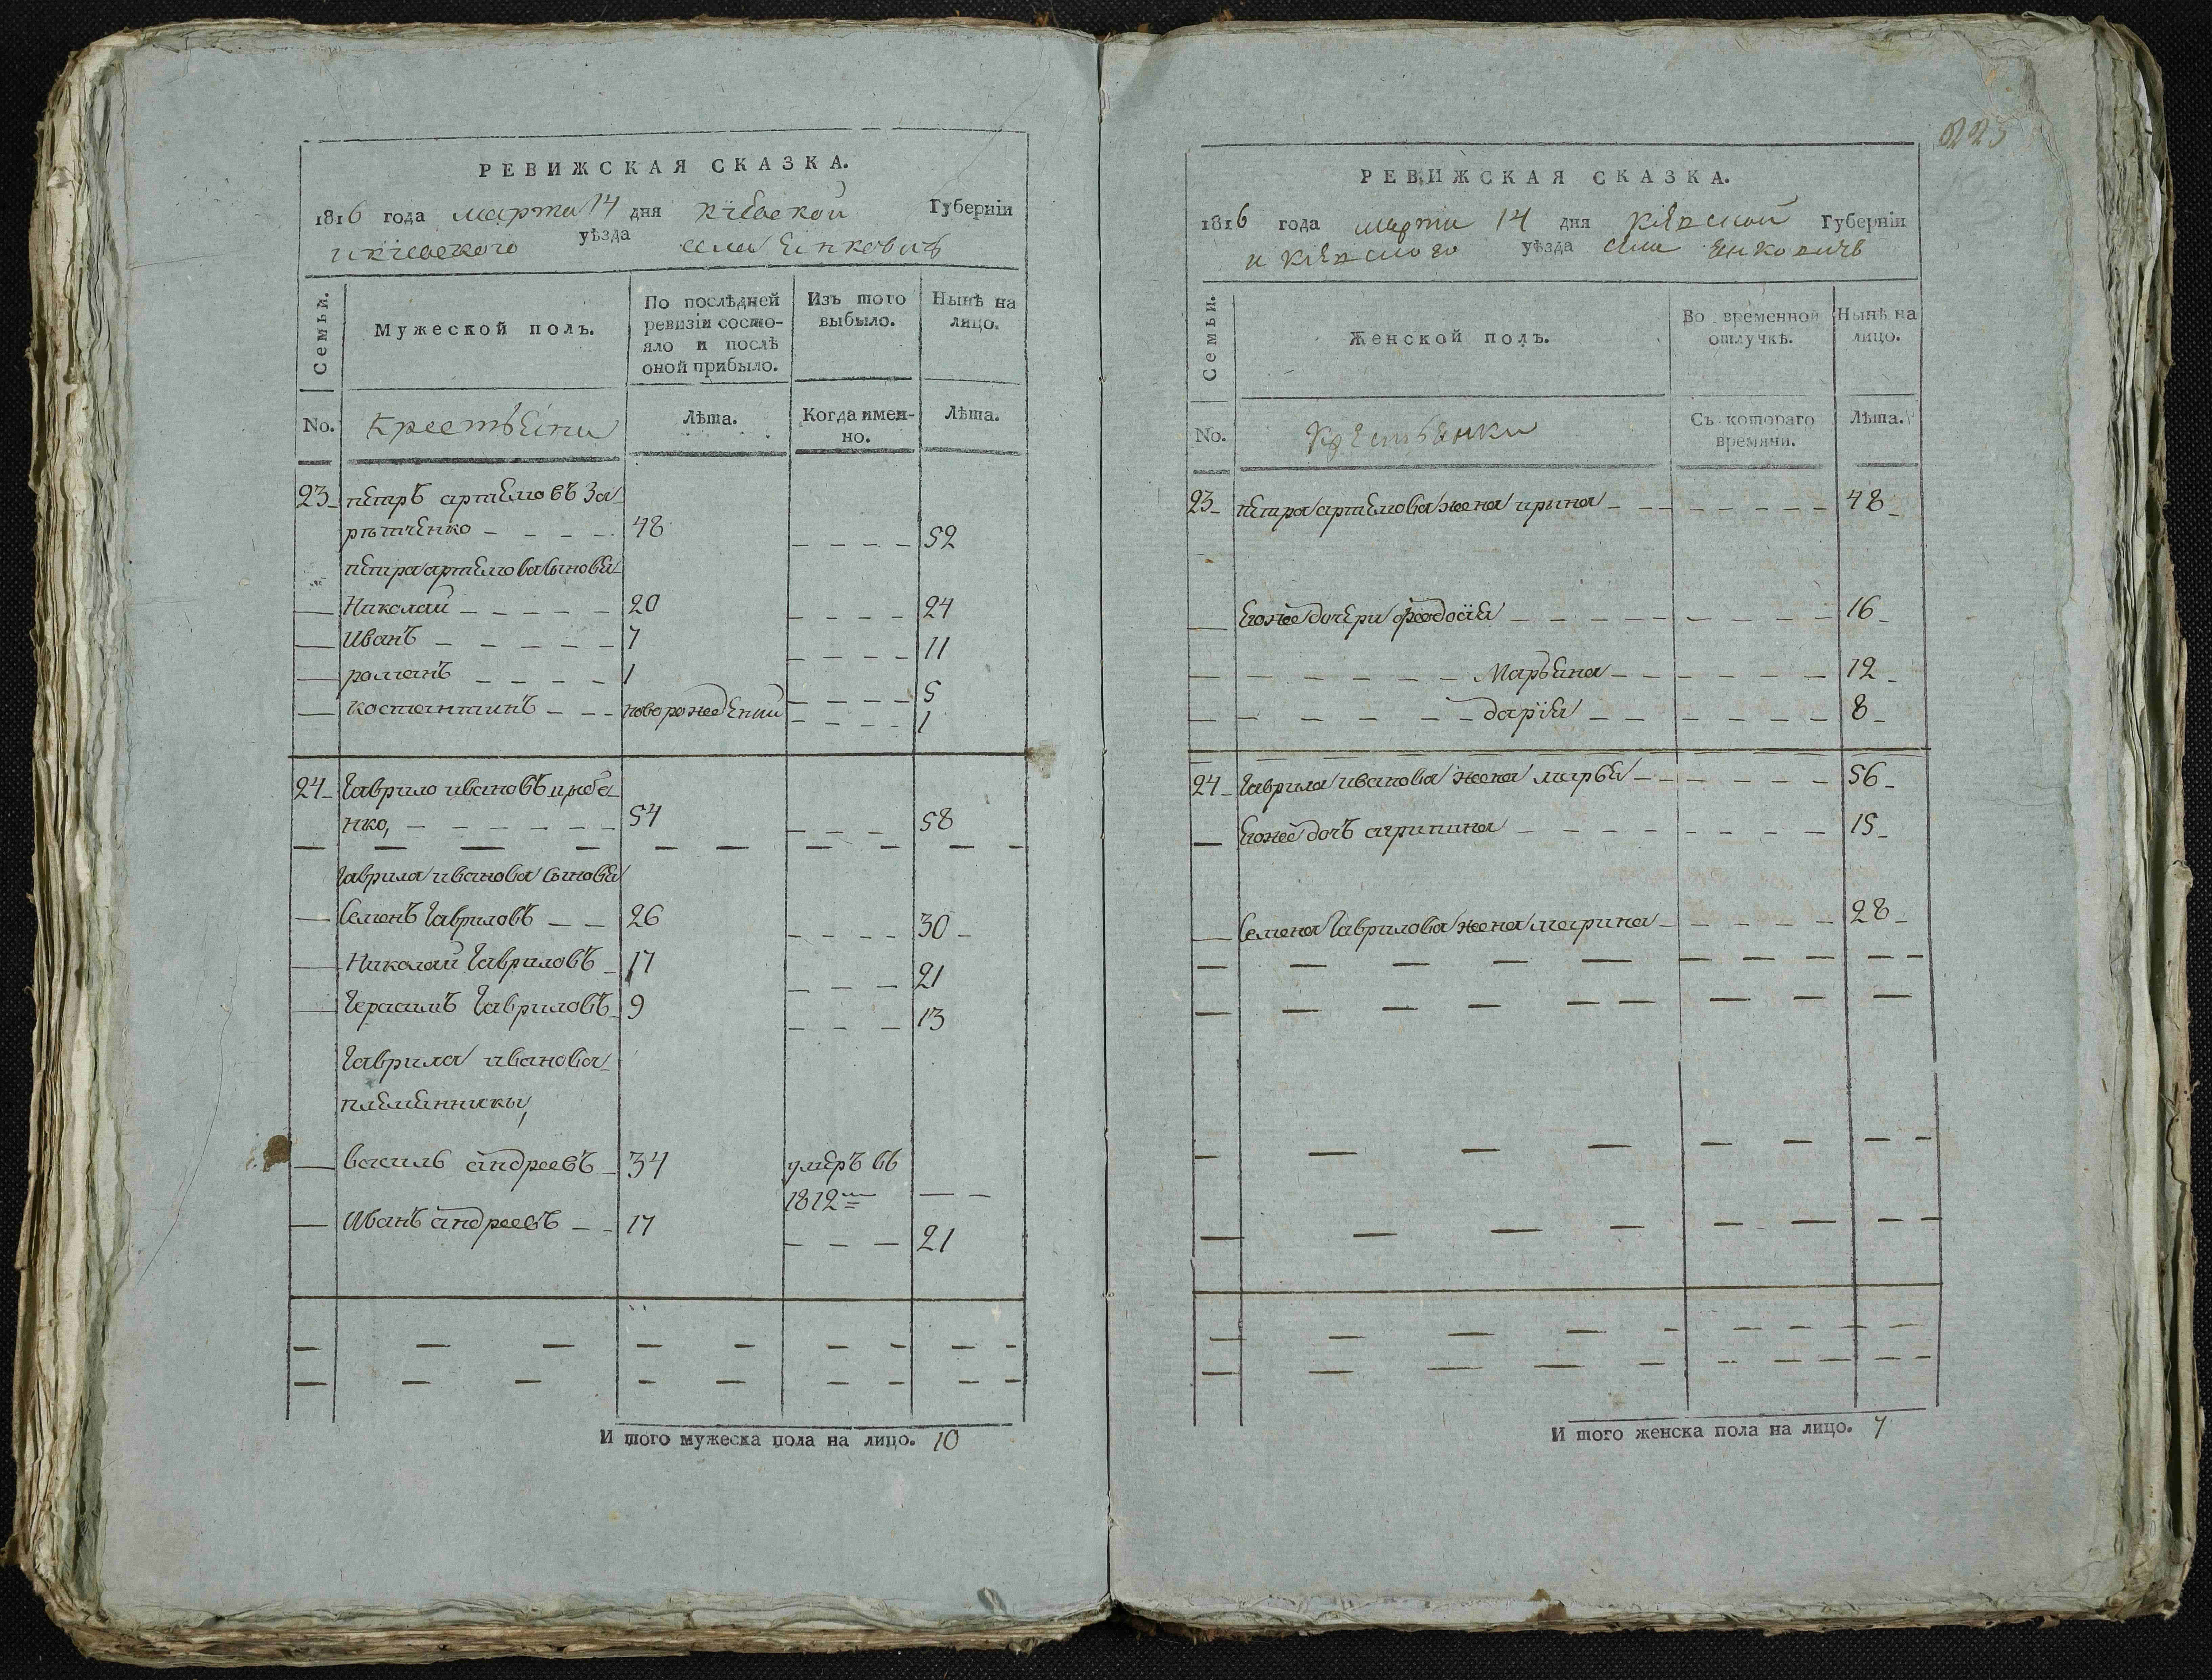 РЕВИЖСКАЯ СКАЗКА.
1816 года марта 14 дня кіевской Губерніи
и кіевского уѣзда села Янковичь
Семьи.
Мужеской полъ.
По послѣдней ревизіи состояло и послѣ оной прибыло.
Изъ того выбыло.
Нынѣ на лицо.
No.
крестьяни
Лѣта.
Когда именно.
Лѣта.
23 петръ артемовъ За
48 52
петра артемова сыновя
Николай 20 24
Иванъ 7 11
романъ 1 5
костантинъ новорождений 1
24 гаврило ивановъ
нко, 54 58
гаврила иванова сыновя
семенъ гавриловъ 26 30
Николай гавриловъ 17 21
герасимъ гавриловъ 9 13
гаврила иванова
племянники,
василь андреевъ 34 умеръ въ
1812
Иванъ андреевъ 17 21
И того мужеска пола на лицо. 10
225
РЕВИЖСКАЯ СКАЗКА.
1816 года марта 14 дня кіевской Губерніи
и кіевского уѣзда села Янковичь
Семьи.
Женской полъ.
Во временной отлучкѣ.
Нынѣ на лицо.
No.
крестьянки
Съ котораго времяни.
Лѣта.
23 петра артемова жена ирина 48
егоже дочери феодосія 16
Марьяна 12
дарія 8
24 гаврила иванова жена марья 56
егоже дочь агрипина 15
семена гаврилова жена марина 28
И того женска пола на лицо. 7